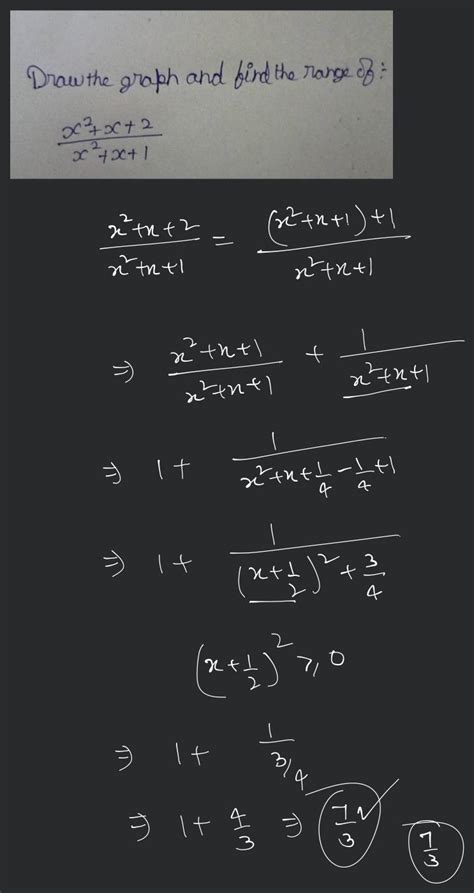 Draw the graph and find the range of :-
x²+x+2 / x²+x+1
x²+x+2 / x²+x+1 = (x²+x+1)+1 / x²+x+1
⇒ x²+x+1 / x²+x+1 + 1 / x²+x+1
⇒ 1 + 1 / x²+x+1/4-1/4+1
⇒ 1 + 1 / (x+1/2)²+3/4
(x+1/2)² ≥ 0
⇒ 1 + 1 / 3/4
⇒ 1 + 4/3 ⇒ 7/3 ✓ 7/3